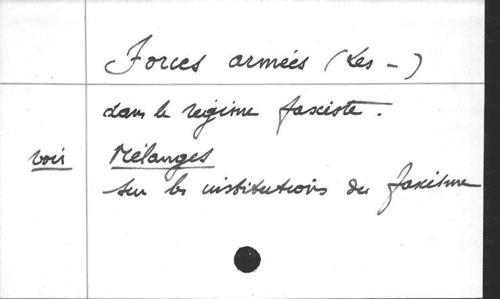 Forces armées (Les -)
dans le régime fasciste.
voir Mélanges
sur les institutions du fascisme